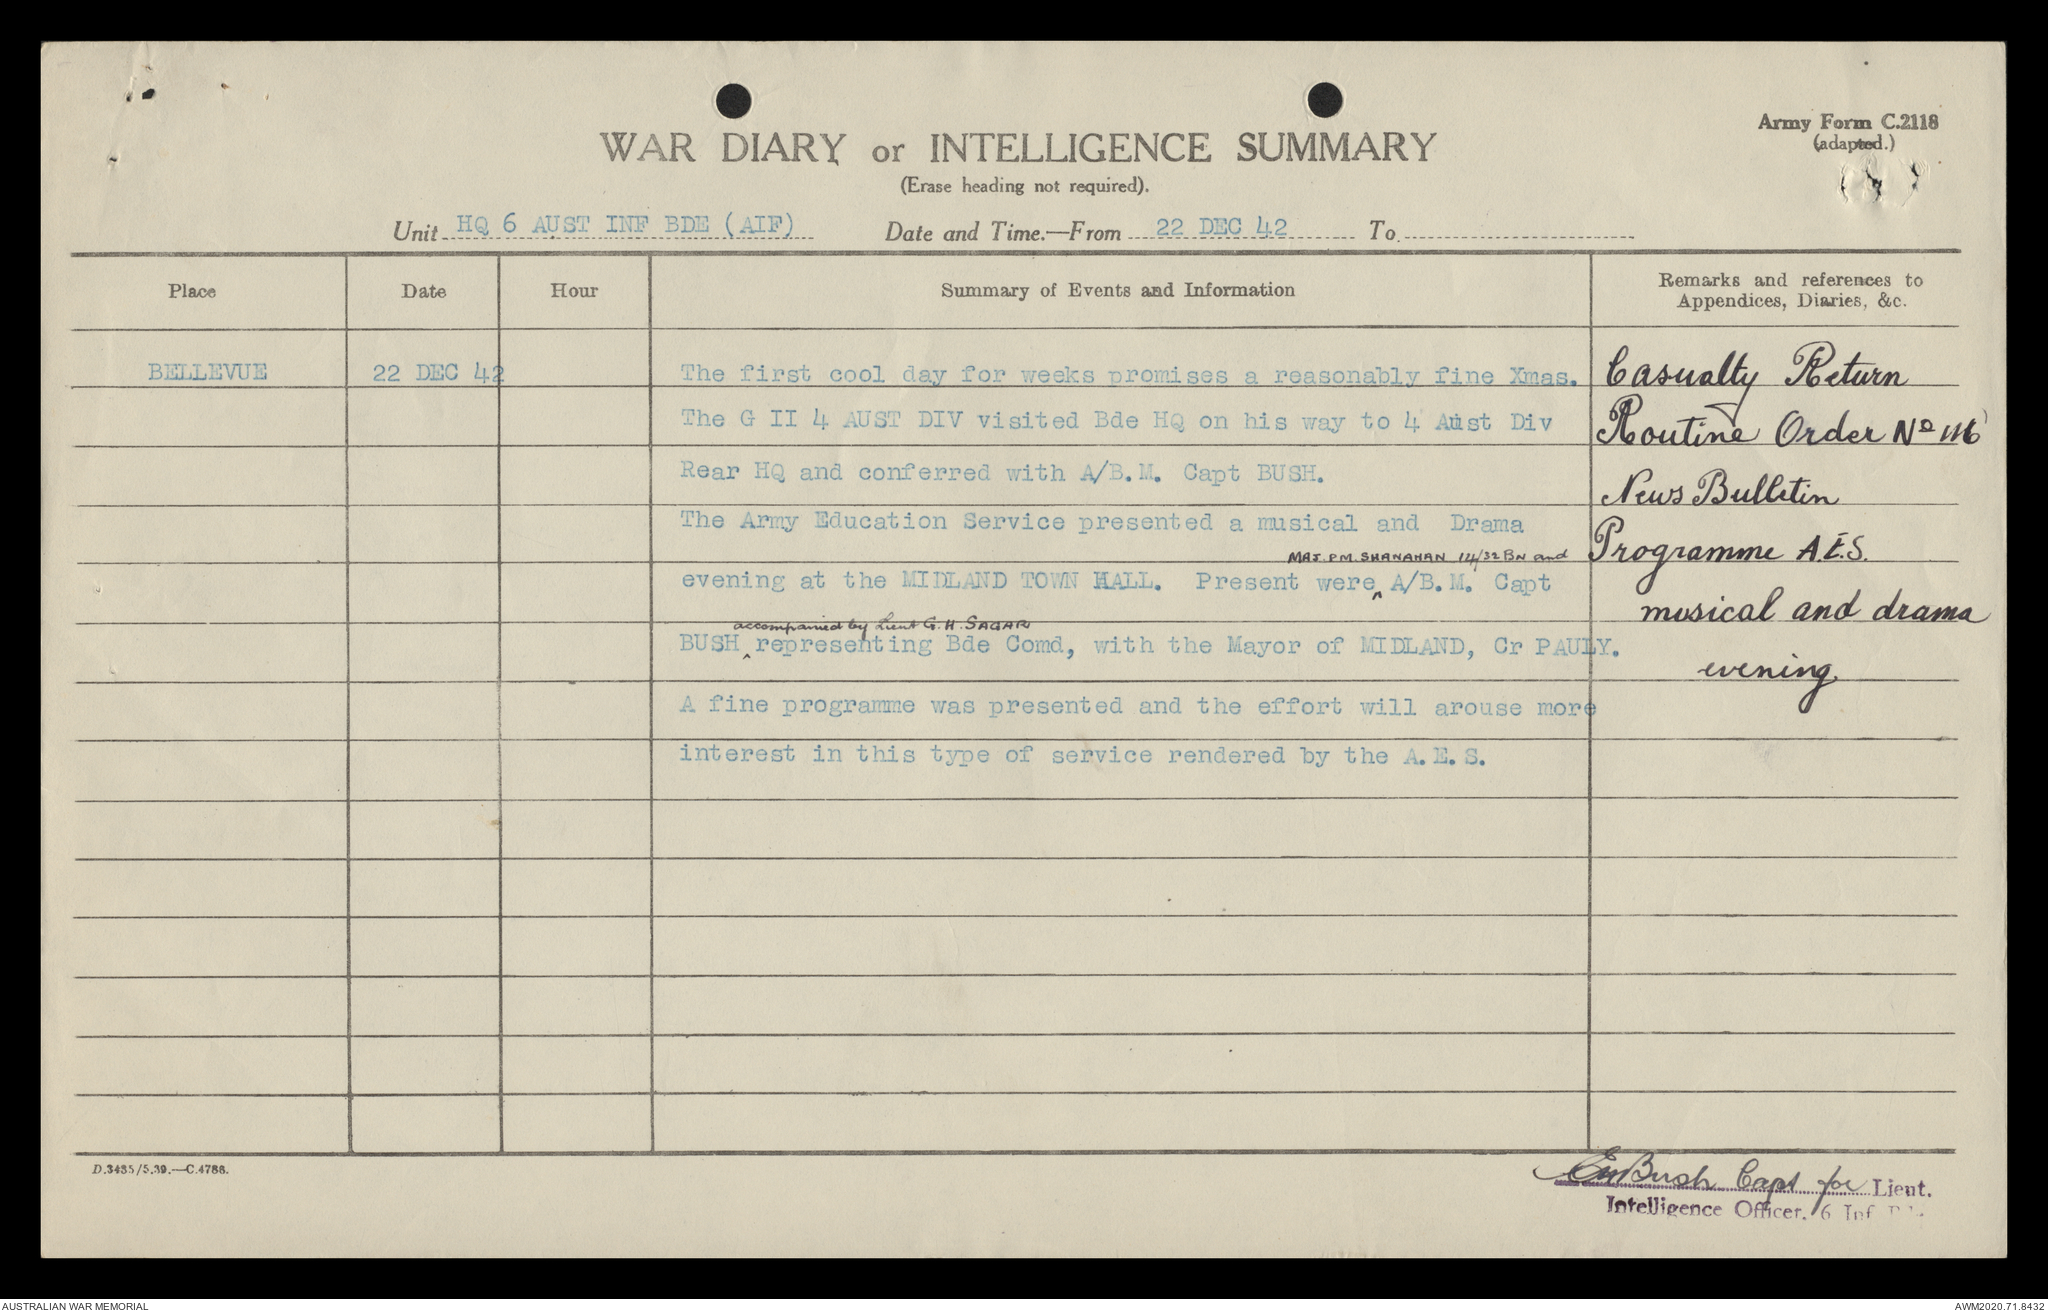 WAR DIARY or INTELLIGENCE SUMMARY
Army Form C.2118
(adapted.)
(Erase heading not required).
Unit HQ 6 AUST INF BDE (AIF) Date and Time.—From 22 DEC 42 To
Place Date Hour Summary of Events and Information Remarks and references to
Appendices, Diaries, &c.
BELLEVUE 22 DEC 42 The first cool day for weeks promises a reasonably fine Xmas. Casualty Return
The G II 4 AUST DIV visited Bde HQ on his way to 4 Aust Div Routine Order No 116
Rear HQ and conferred with A/B.M. Capt BUSH. News Bulletin
The Army Education Service presented a musical and Drama Programme A.E.S.
MAJ. P.M. SHANAHAN 14/32 BN and
evening at the MIDLAND TOWN HALL. Present were ^ A/B.M. Capt musical and drama
accompanied by Lieut G. H. SAGAR
BUSH ^ representing Bde Comd, with the Mayor of MIDLAND, Cr PAULY. evening.
A fine programme was presented and the effort will arouse more
interest in this type of service rendered by the A.E.S.
D.3435/5.39.—C.4788.
Bush Capt for Lieut.
Intelligence Officer, 6 Inf
AUSTRALIAN WAR MEMORIAL AWM2020.71.8432